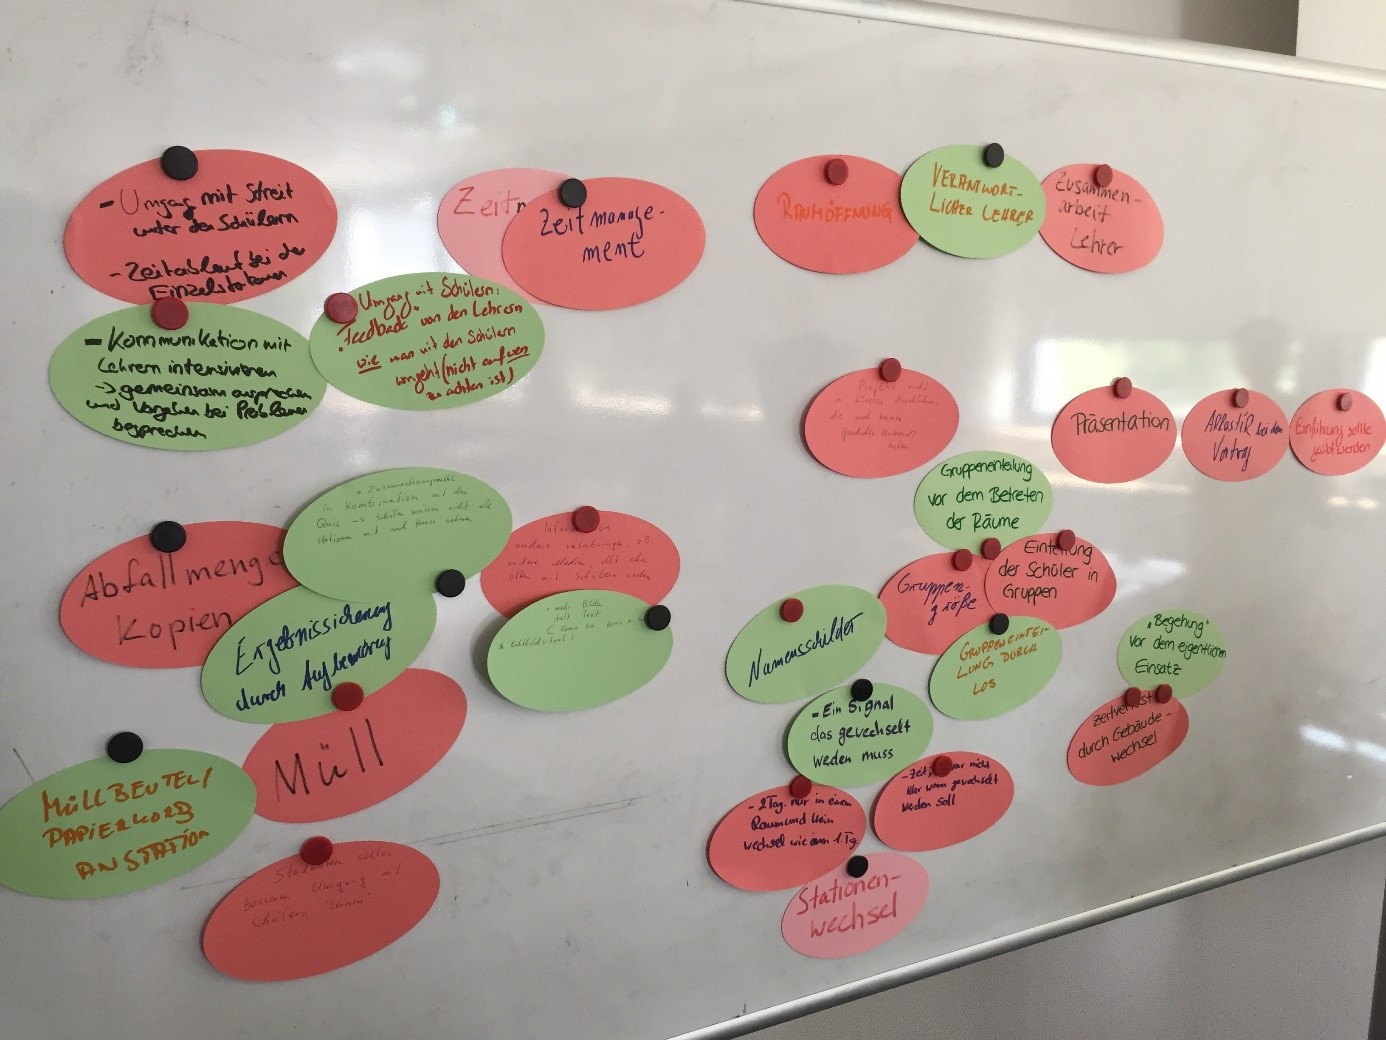 - Umgang mit Streit
unter den Schülern
- Zeitablauf bei den
Einzelstationen
- Kommunikation mit
Lehrern intensivieren
-> gemeinsam
und Vorgehen bei Problemen
besprechen
Zeit
Zeitmanage-
ment
Umgang mit Schülern:
"Feedback" von den Lehrern
wie man mit den Schülern
umgeht (nicht auf
zu achten ist)
RAUMÖFFNUNG
VERANTWORT-
LICHER LEHRER
Zusammen-
arbeit
Lehrer
Projekt nicht
in Klassen durchführen,
die noch keinen
Geschichts-Unterricht
hatten
Präsentation
Akustik bei dem
Vortrag
Einführung sollte
geübt werden
Gruppeneinteilung
vor dem Betreten
der Räume
Gruppen-
größe
Einteilung
der Schüler in
Gruppen
GRUPPENEINTEI-
LUNG DURCH
LOS
Namensschilder
- Ein Signal
das gewechselt
weden muss
- Zeit, war nicht
klar wann gewechselt
werden soll
- 2 Tag. nur in einem
Raum und kein
wechsel wie am 1. Tg.
Stationen-
wechsel
"Begehung"
vor dem eigentlichen
Einsatz
Zeitverlust
durch Gebäude-
wechsel
Abfallmenge
Kopien
in Kombination mit dem
Quiz -> Schüler müssen nicht alle
Stationen mit nach Hause nehmen
Ergebnissicherung
durch Aufbewahrung
Information
anders z.B.
andere Medien,
öfter mit Schülern reden
- mehr Bilder
statt Text
Müll
MÜLLBEUTEL/
PAPIERKORB
AN STATION
Studenten sollen
besseren Umgang mit
Schülern "lernen"